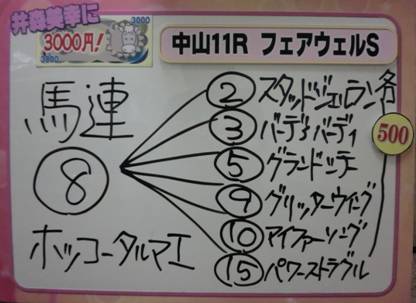 井森美幸に
3000円!
3000
3000
中山11R フェアウェルS
馬連
⑧
ホッコータルマエ
② スタッドジェルラン
③ バーディバーディ
⑤ グランドシチー
⑨ グリッターウイング
⑩ アイファーソング
⑮ パワーストラグル
各
500